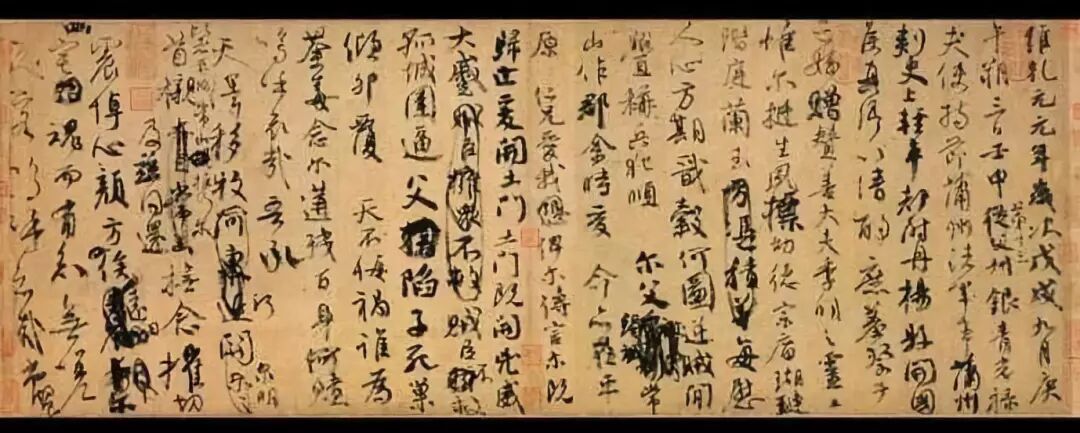 維乾元元年歲次戊戌九月庚
午朔三日壬申第十三叔銀青光祿
夫使持節蒲州諸軍事蒲州
刺史上輕車都尉丹楊縣開國
侯真卿以清酌庶羞祭于
亡姪贈贊善大夫季明之靈曰
惟爾挺生夙標幼德宗廟瑚璉
階庭蘭玉方憑積善每慰
人心方期戩穀何圖逆賊閒
釁稱兵犯順爾父竭誠常
山作郡余時受命亦在平
原仁兄愛我俾爾傳言爾既
歸止爰開土門土門既開凶威
大蹙賊臣擁眾不救賊臣不救
孤城圍逼父陷子死巢
傾卵覆天不悔禍誰為
荼毒念爾遘殘百身何贖
嗚呼哀哉吾承
天澤移牧河關泉明
比者再陷常山攜爾
首櫬及茲同還撫念摧切
震悼心顏方俟遠日
宅魂而有知無嗟
久客嗚呼哀哉尚饗